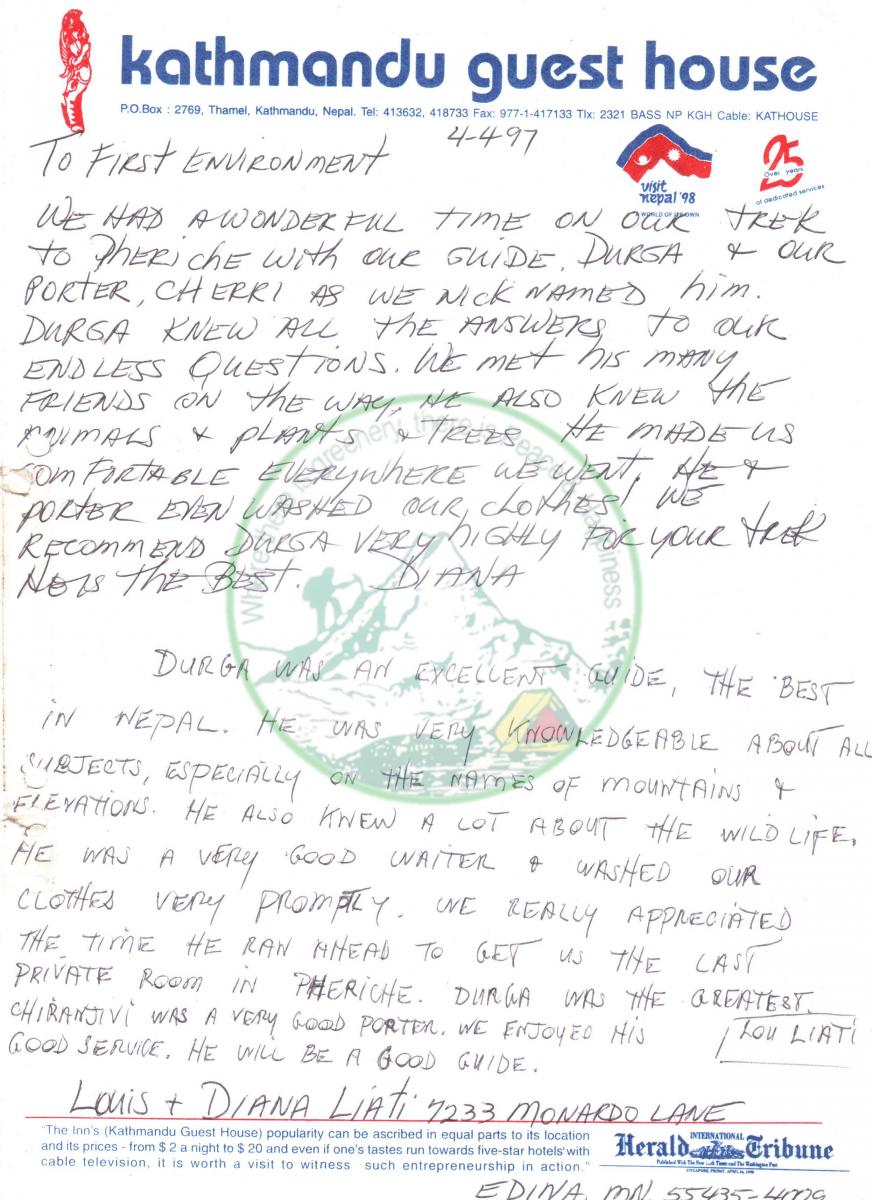 kathmandu guest house
P.O.Box : 2769, Thamel, Kathmandu, Nepal. Tel: 413632, 418733 Fax: 977-1-417133 Tlx: 2321 BASS NP KGH Cable: KATHOUSE
4-4-97
TO FIRST ENVIRONMENT
visit
nepal '98
A WORLD OF ITS OWN
25
Over years
of dedicated services
WE HAD A WONDERFUL TIME ON OUR TREK
TO PHERICHE WITH OUR GUIDE, DURGA & OUR
PORTER, CHERRI AS WE NICK NAMED him.
DURGA KNEW ALL THE ANSWERS TO OUR
ENDLESS QUESTIONS. WE MET his MANY
FRIENDS ON THE WAY. HE ALSO KNEW THE
ANIMALS & PLANTS & TREES. HE MADE US
COMFORTABLE EVERYWHERE WE WENT. HE &
PORTER EVEN WASHED OUR CLOTHES! WE
RECOMMEND DURGA VERY HIGHLY FOR YOUR TREK
HE IS THE BEST. DIANA
Where there is greenery, there is peace & Happiness
DURGA WAS AN EXCELLENT GUIDE, THE BEST
IN NEPAL. HE WAS VERY KNOWLEDGEABLE ABOUT ALL
SUBJECTS, ESPECIALLY ON THE NAMES OF MOUNTAINS &
ELEVATIONS. HE ALSO KNEW A LOT ABOUT THE WILD LIFE.
HE WAS A VERY GOOD WAITER & WASHED OUR
CLOTHES VERY PROMPTLY. WE REALLY APPRECIATED
THE TIME HE RAN AHEAD TO GET US THE LAST
PRIVATE ROOM IN PHERICHE. DURGA WAS THE GREATEST.
CHIRANJIVI WAS A VERY GOOD PORTER. WE ENJOYED HIS
LOU LIATI
GOOD SERVICE. HE WILL BE A GOOD GUIDE.
Louis + DIANA LIATI 7233 MONARDO LANE
"The Inn's (Kathmandu Guest House) popularity can be ascribed in equal parts to its location
and its prices - from $ 2 a night to $ 20 and even if one's tastes run towards five-star hotels' with
cable television, it is worth a visit to witness such entrepreneurship in action."
INTERNATIONAL
Herald Tribune
Published With The New York Times and The Washington Post
EDINA, MN 55435-